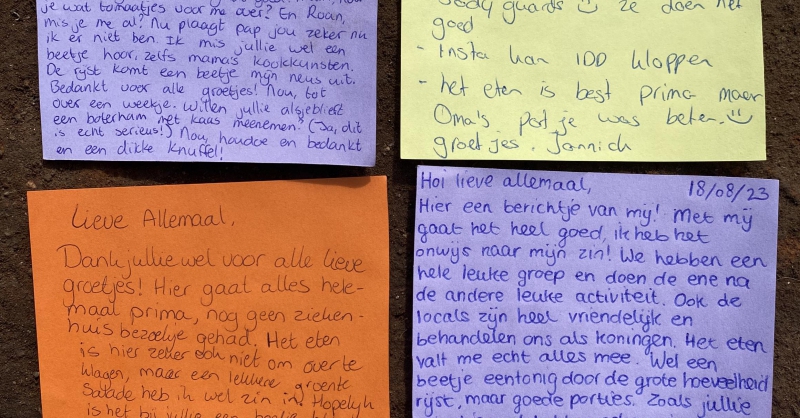 je wat tomaatjes voor me over? En Roan,
mis je me al? Nu plaagt pap jou zeker nu
ik er niet ben. Ik mis jullie wel een
beetje hoor, zelfs mama's kookkunsten.
De rijst komt een beetje mijn neus uit.
Bedankt voor alle groetjes! Nou, tot
over een weekje. Willen jullie alsjeblieft
een boterham met kaas meenemen. (Ja, dit
is echt serieus!) Nou, houdoe en bedankt
en een dikke knuffel!
body guards ze doen het
goed
- Insta kan IDD kloppen
- het eten is best prima maar
Oma's potje was beter.
groetjes. Jannich
Lieve Allemaal,
Dank jullie wel voor alle lieve
groetjes! Hier gaat alles hele-
maal prima, nog geen zieken-
huis bezoekje gehad. Het eten
is hier zeker ook niet om over te
klagen, maar een lekkere groente
Salade heb ik wel zin in. Hopelijk
is het bij jullie een
Hoi lieve allemaal,
18/08/23
Hier een berichtje van mij! Met mij
gaat het heel goed, ik heb het
onwijs naar mijn zin! We hebben een
hele leuke groep en doen de ene na
de andere leuke activiteit. Ook de
locals zijn heel vriendelijk en
behandelen ons als koningen. Het eten
valt me echt alles mee. Wel een
beetje eentonig door de grote hoeveelheid
rijst, maar goede porties. Zoals jullie